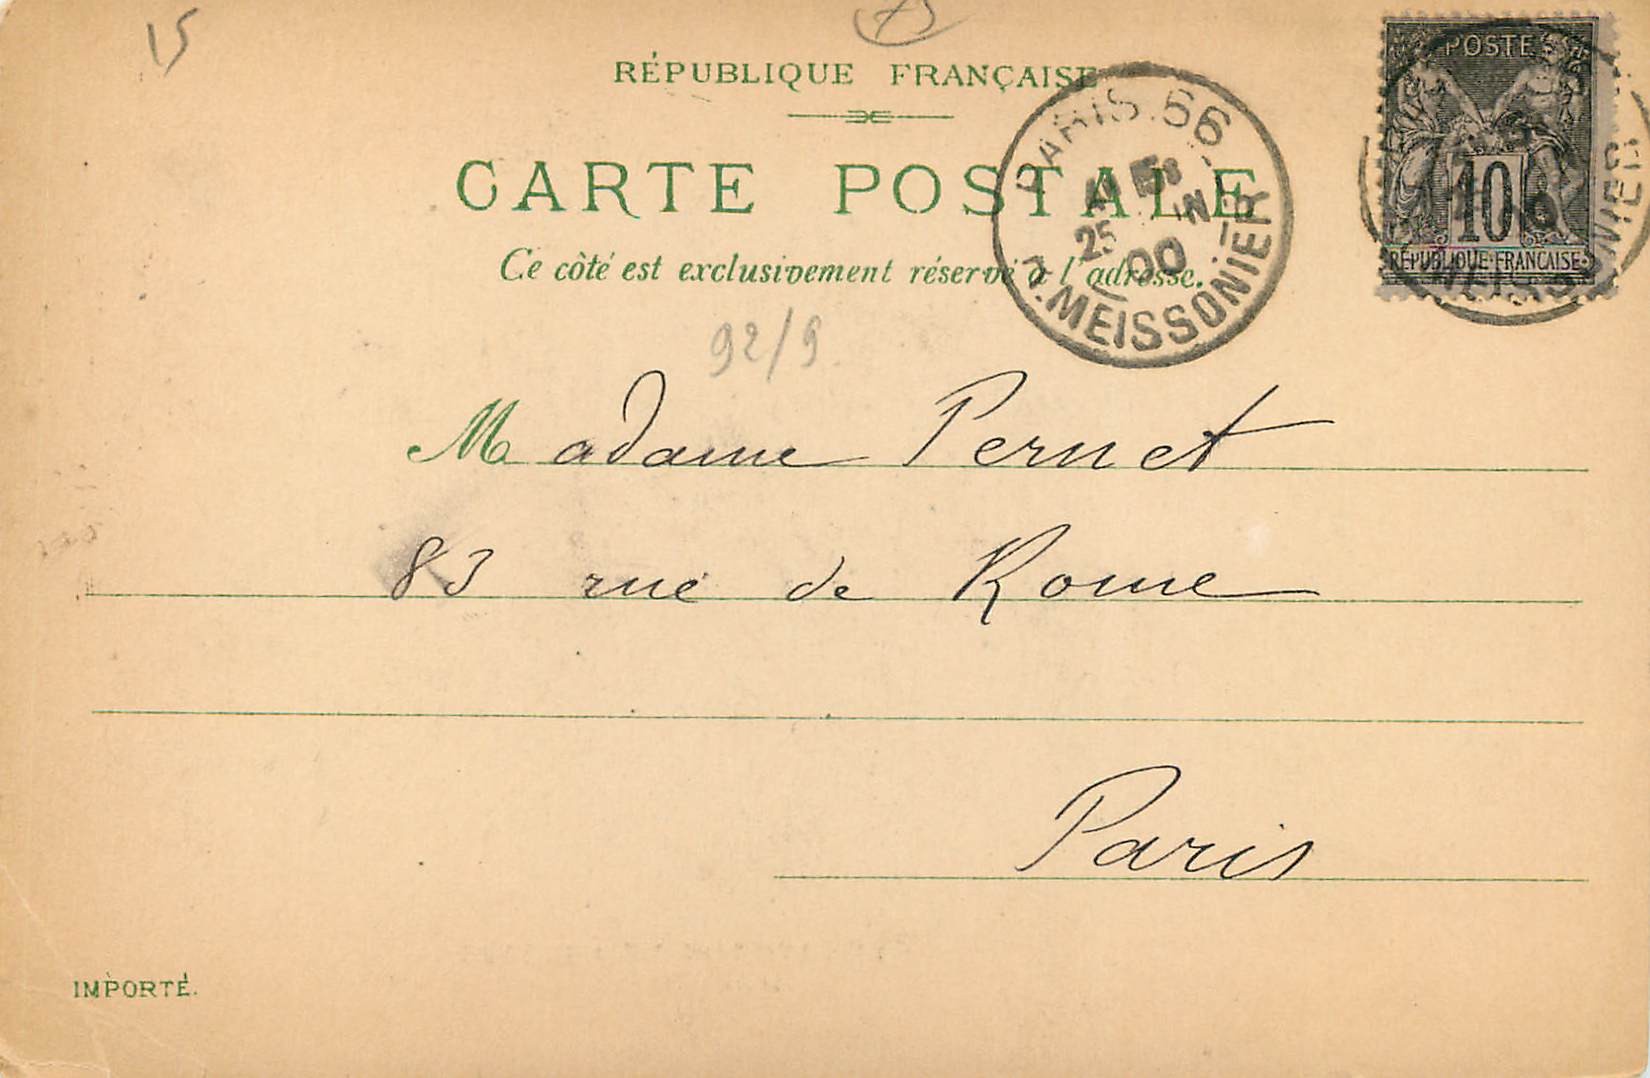 15
75
RÉPUBLIQUE FRANÇAISE
CARTE POSTALE
Ce côté est exclusivement réservé à l'adresse.
PARIS. 56
25 00
R. MEISSONIER
POSTES
10
RÉPUBLIQUE FRANÇAISE
92/9
Madame Pernet
83 rue de Rome
Paris
IMPORTÉ.